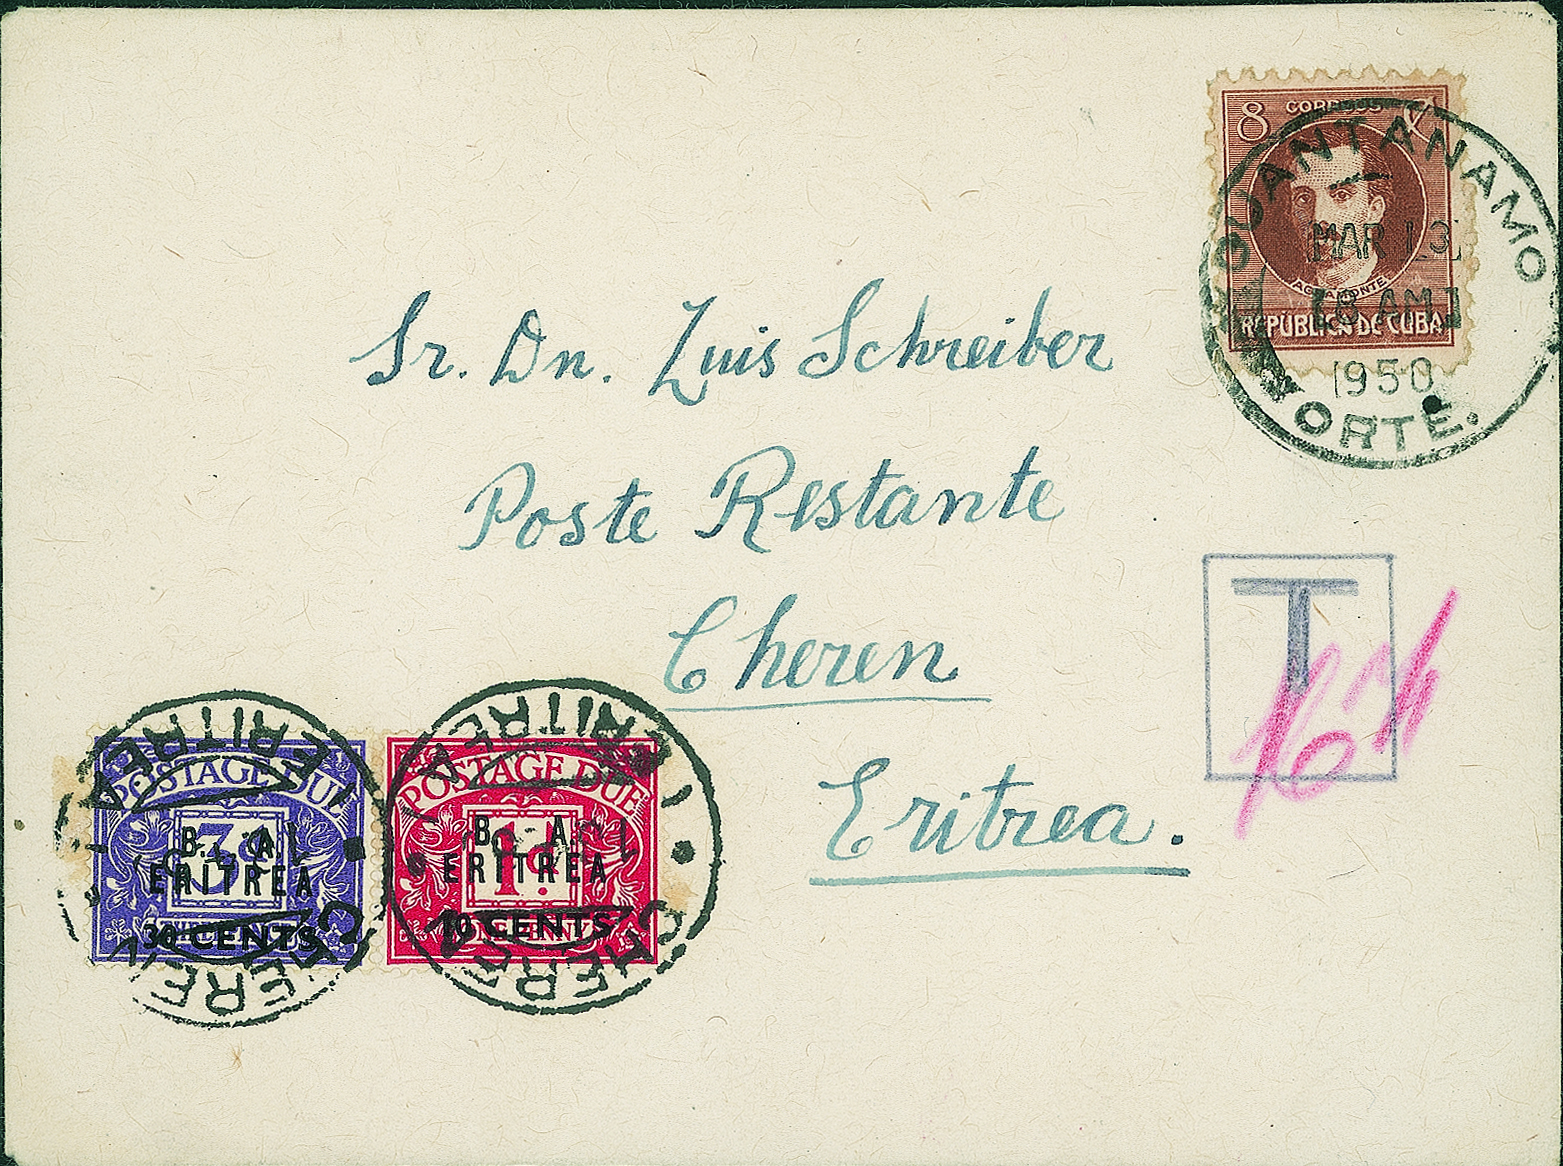 8 CORREOS
GUANTANAMO
MAR 13
8 AM
AGRAMONTE
REPUBLICA DE CUBA
1950
NORTE.
Sr. Dn. Luis Schreiber
Poste Restante
Cheren
Eritrea.
T
ERITREA
POSTAGE DUE
3d
B. A.
ERITREA
30 CENTS
CHEREN
ERITREA
POSTAGE DUE
1d.
B. A.
ERITREA
10 CENTS
ONE PENNY
CHEREN